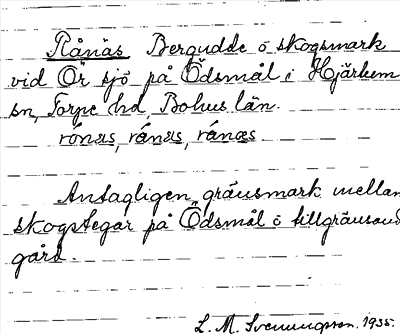 Rånäs Bergudde o skogsmark
vid Ör sjö på Ödsmål i Hjärtum
sn, Torpe hd Bohus län.
rónæs, rånæs, rånæs
Antagligen gränsmark mellan
skogstegar på Ödsmål o tillgränsand
gård.
L. M. Svenungson. 1935.